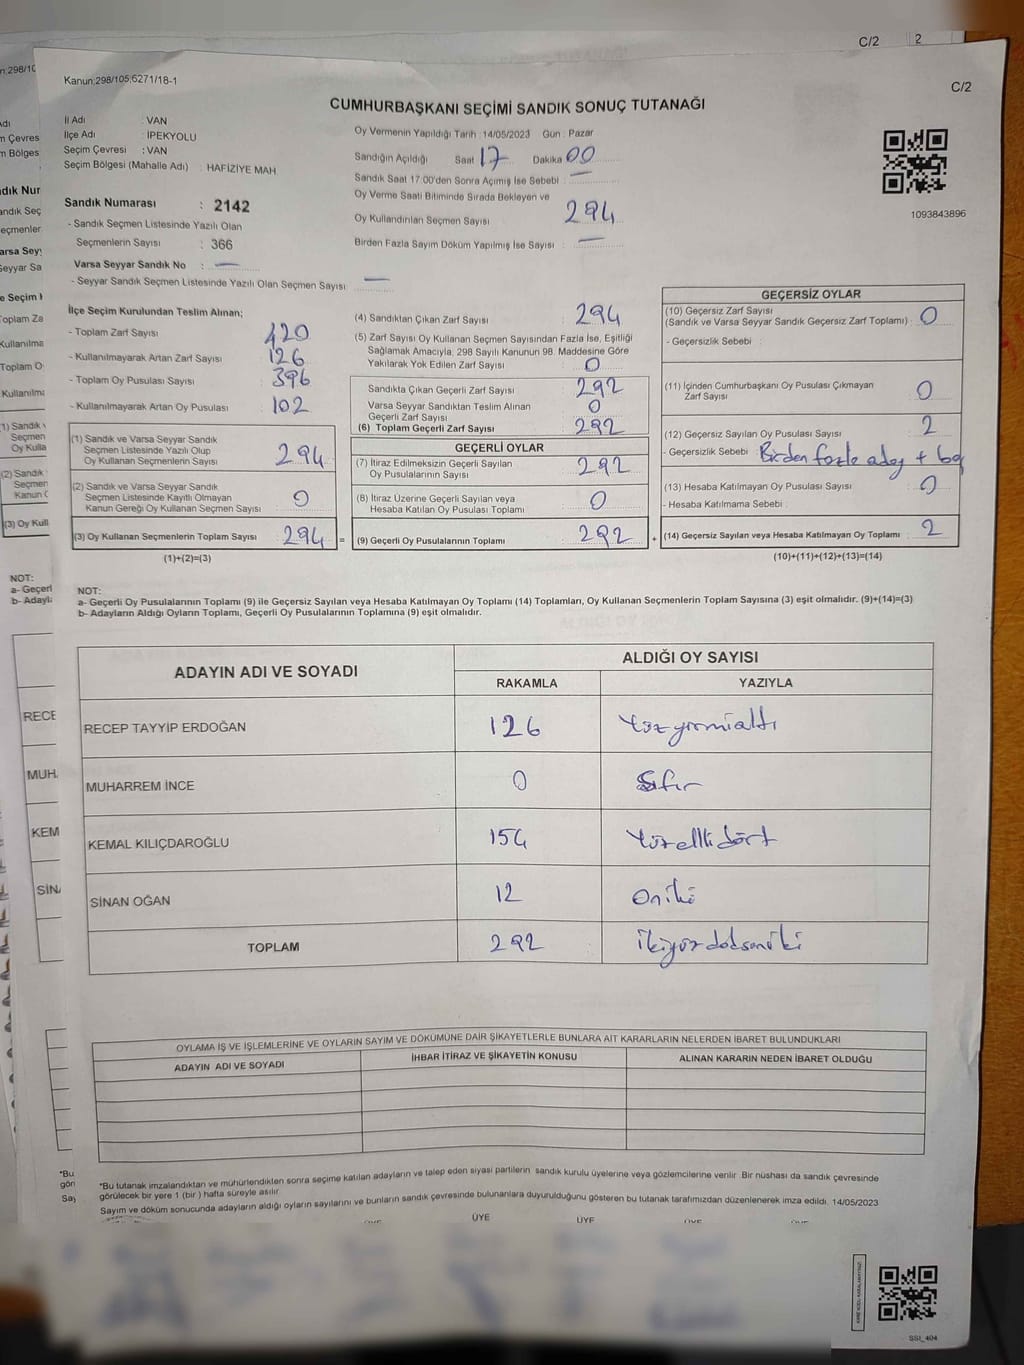 C/2
2
Kanun:298/105;6271/18-1
C/2
CUMHURBAŞKANI SEÇİMİ SANDIK SONUÇ TUTANAĞI
İl Adı : VAN
İlçe Adı : İPEKYOLU
Seçim Çevresi : VAN
Seçim Bölgesi (Mahalle Adı) : HAFİZİYE MAH
Sandık Numarası : 2142
- Sandık Seçmen Listesinde Yazılı Olan
Seçmenlerin Sayısı : 366
Varsa Seyyar Sandık No : —
- Seyyar Sandık Seçmen Listesinde Yazılı Olan Seçmen Sayısı : —
Oy Vermenin Yapıldığı Tarih : 14/05/2023 Gün : Pazar
Sandığın Açıldığı Saat 17 Dakika 00
Sandık Saat 17:00'den Sonra Açımış İse Sebebi : —
Oy Verme Saati Bitiminde Sırada Bekleyen ve
Oy Kullandırılan Seçmen Sayısı : 294
Birden Fazla Sayım Döküm Yapılmış İse Sayısı : —
1093843896
İlçe Seçim Kurulundan Teslim Alınan;
- Toplam Zarf Sayısı : 420
- Kullanılmayarak Artan Zarf Sayısı : 126
- Toplam Oy Pusulası Sayısı : 396
- Kullanılmayarak Artan Oy Pusulası : 102
(1) Sandık ve Varsa Seyyar Sandık
Seçmen Listesinde Yazılı Olup
Oy Kullanan Seçmenlerin Sayısı : 294
(2) Sandık ve Varsa Seyyar Sandık
Seçmen Listesinde Kayıtlı Olmayan
Kanun Gereği Oy Kullanan Seçmen Sayısı : 0
(3) Oy Kullanan Seçmenlerin Toplam Sayısı : 294 =
(1)+(2)=(3)
(4) Sandıktan Çıkan Zarf Sayısı : 294
(5) Zarf Sayısı Oy Kullanan Seçmen Sayısından Fazla İse, Eşitliği
Sağlamak Amacıyla; 298 Sayılı Kanunun 98. Maddesine Göre
Yakılarak Yok Edilen Zarf Sayısı : 0
Sandıkta Çıkan Geçerli Zarf Sayısı : 292
Varsa Seyyar Sandıktan Teslim Alınan
Geçerli Zarf Sayısı : 0
(6) Toplam Geçerli Zarf Sayısı : 292
GEÇERLİ OYLAR
(7) İtiraz Edilmeksizin Geçerli Sayılan
Oy Pusulalarının Sayısı : 292
(8) İtiraz Üzerine Geçerli Sayılan veya
Hesaba Katılan Oy Pusulası Toplamı : 0
(9) Geçerli Oy Pusulalarının Toplamı : 292 +
GEÇERSİZ OYLAR
(10) Geçersiz Zarf Sayısı
(Sandık ve Varsa Seyyar Sandık Geçersiz Zarf Toplamı) : 0
- Geçersizlik Sebebi :
(11) İçinden Cumhurbaşkanı Oy Pusulası Çıkmayan
Zarf Sayısı : 0
(12) Geçersiz Sayılan Oy Pusulası Sayısı : 2
- Geçersizlik Sebebi : Birden fazla aday +
(13) Hesaba Katılmayan Oy Pusulası Sayısı : 0
- Hesaba Katılmama Sebebi :
(14) Geçersiz Sayılan veya Hesaba Katılmayan Oy Toplamı : 2
(10)+(11)+(12)+(13)=(14)
NOT:
a- Geçerli Oy Pusulalarının Toplamı (9) ile Geçersiz Sayılan veya Hesaba Katılmayan Oy Toplamı (14) Toplamları, Oy Kullanan Seçmenlerin Toplam Sayısına (3) eşit olmalıdır. (9)+(14)=(3)
b- Adayların Aldığı Oyların Toplamı, Geçerli Oy Pusulalarının Toplamına (9) eşit olmalıdır.
ADAYIN ADI VE SOYADI ALDIĞI OY SAYISI
RAKAMLA YAZIYLA
RECEP TAYYİP ERDOĞAN 126 Yüzyirmialtı
MUHARREM İNCE 0 Sıfır
KEMAL KILIÇDAROĞLU 154 Yüzellidört
SİNAN OĞAN 12 Oniki
TOPLAM 292 İkiyüzdoksaniki
OYLAMA İŞ VE İŞLEMLERİNE VE OYLARIN SAYIM VE DÖKÜMÜNE DAİR ŞİKAYETLERLE BUNLARA AİT KARARLARIN NELERDEN İBARET BULUNDUKLARI
ADAYIN ADI VE SOYADI İHBAR İTİRAZ VE ŞİKAYETİN KONUSU ALINAN KARARIN NEDEN İBARET OLDUĞU
*Bu tutanak imzalandıktan ve mühürlendikten sonra seçime katılan adayların ve talep eden siyasi partilerin sandık kurulu üyelerine veya gözlemcilerine verilir. Bir nüshası da sandık çevresinde
görülecek bir yere 1 (bir ) hafta süreyle asılır.
Sayım ve döküm sonucunda adayların aldığı oyların sayılarını ve bunların sandık çevresinde bulunanlara duyurulduğunu gösteren bu tutanak tarafımızdan düzenlenerek imza edildi. 14/05/2023
ÜYE ÜYE
SSI_404